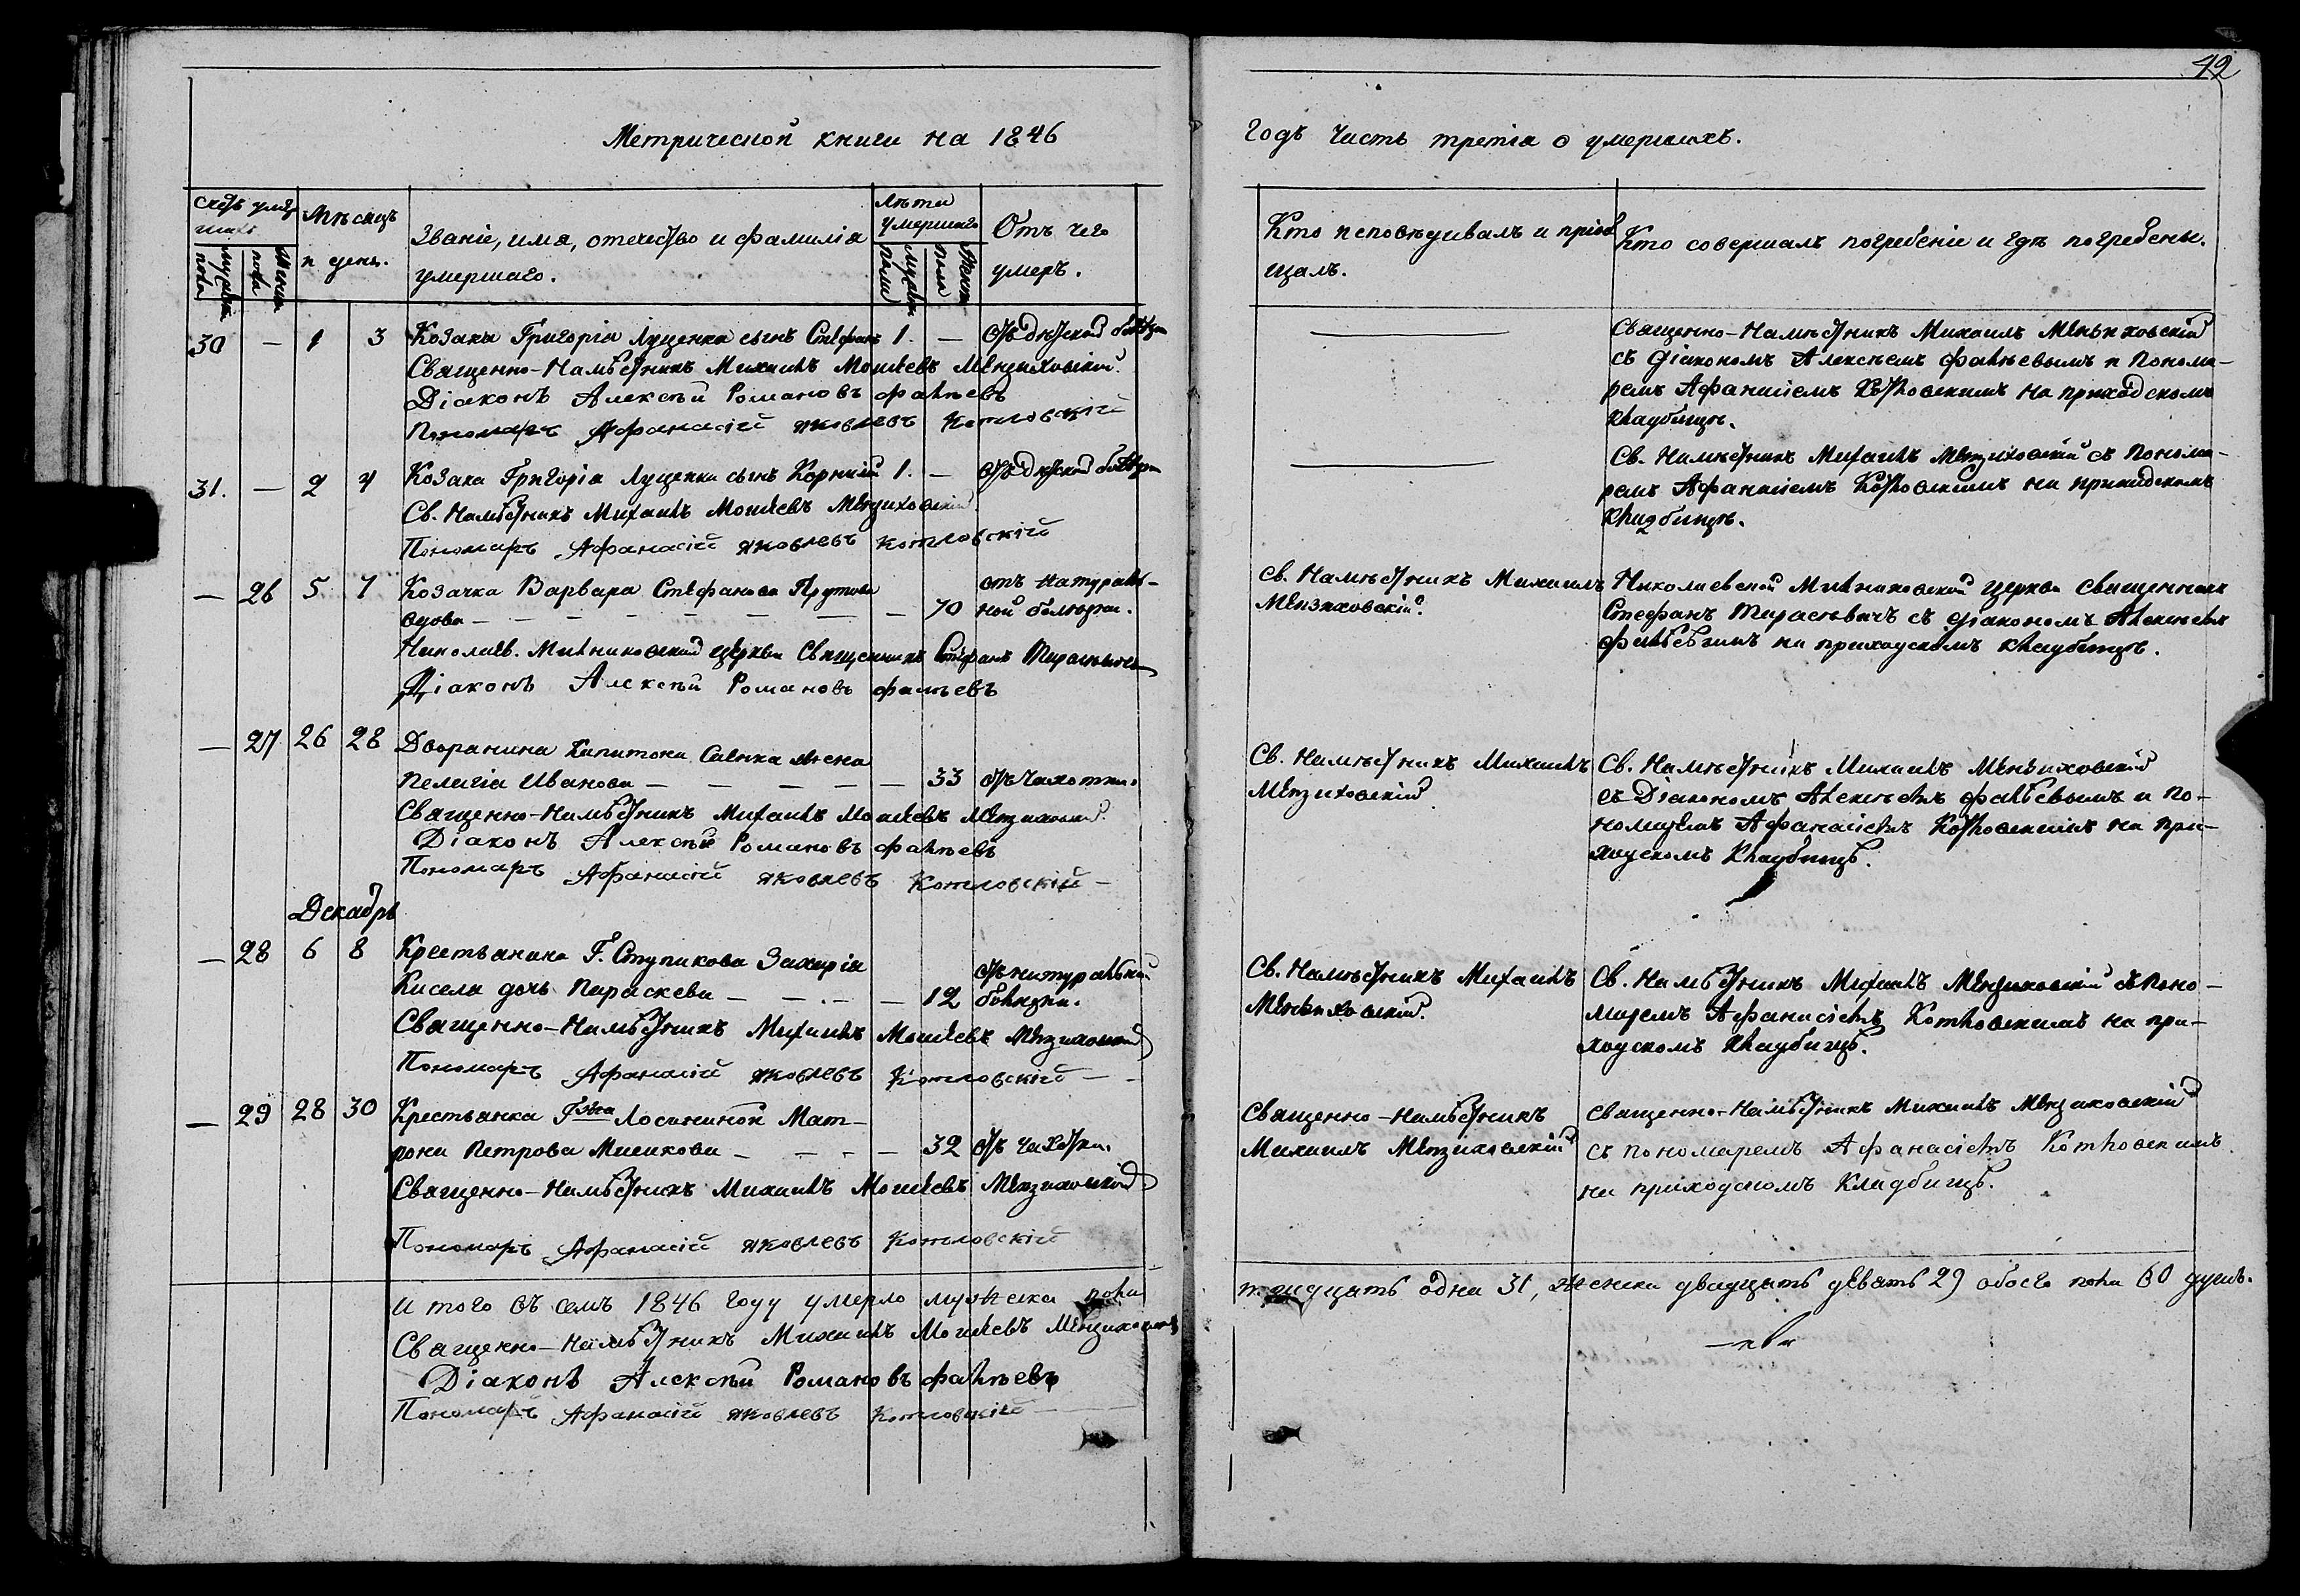 42
Метрической книги на 1846
годъ Часть третія о умершихъ.
Счетъ умер
шихъ
Мѣсяцъ
и день.
Званіе, имя, отечество и фамилія
умершаго.
Лѣта
умершаго
Отъ чего
умеръ.
Мужеска
пола
Женска
пола
Мужеска
пола
Женска
пола
Кто исповѣдывалъ и пріоб
щалъ.
Кто совершалъ погребеніе и гдѣ погребены.
30 — 1 3 Козака Григорія Луценка сынъ Стефанъ 1. — отъ дѣтской болѣзни
Священно-Намѣстникъ Михаилъ Моисеевъ Мензиховскій
Діаконъ Алексѣй Романовъ Фалѣевъ
Пономарь Афанасій Яковлевъ Котловскій
Священно-Намѣстникъ Михаилъ Меньзиховскій
съ Діакономъ Алексѣемъ Фалѣевымъ и Понома-
ремъ Афанасіемъ Котловскимъ на приходскомъ
кладбищѣ.
31. — 2 4 Козака Григорія Луценка сынъ Корнилій 1. — отъ дѣтской болѣзни
Св. Намѣстникъ Михаилъ Моисеевъ Мензиховскій
Пономарь Афанасій Яковлевъ Котловскій
Св. Намѣстникъ Михаилъ Мензиховскій съ Понома-
ремъ Афанасіемъ Котловскимъ на приходскомъ
кладбищѣ.
— 26 5 7 Козачка Варвара Стефанова
вдова — 70 отъ натураль-
ной болѣзни.
Николаев. церкви Священникъ Стефанъ Тарасѣвичъ
Діаконъ Алексѣй Романовъ Фалѣевъ
Св. Намѣстникъ Михаилъ
Мензиховскій.
Николаевской церкви Священникъ
Стефанъ Тарасѣвичъ съ діакономъ Алексѣемъ
Фалѣевымъ на приходскомъ кладбищѣ.
— 27 26 28 Дворянина Капитона Саенка жена
Пелагія Иванова — 33 отъ чахотки.
Священно-Намѣстникъ Михаилъ Моисеевъ Мензиховскій
Діаконъ Алексѣй Романовъ Фалѣевъ
Пономарь Афанасій Яковлевъ Котловскій —
Св. Намѣстникъ Михаилъ
Мензиховскій
Св. Намѣстникъ Михаилъ Меньзиховскій
съ Діакономъ Алексѣемъ Фалѣевымъ и По-
номаремъ Афанасіемъ Котловскимъ на при-
ходскомъ кладбищѣ.
Декабрь
— 28 6 8 Крестьянина Г. Ступикова Захарія
Кисела дочь Параскева — 12 отъ натуральной
болѣзни.
Священно-Намѣстникъ Михаилъ Моисеевъ Мензиховскій
Пономарь Афанасій Яковлевъ Котловскій —
Св. Намѣстникъ Михаилъ
Меньзиховскій.
Св. Намѣстникъ Михаилъ Мензиховскій съ Поно-
маремъ Афанасіемъ Котловскимъ на при-
ходскомъ кладбищѣ.
— 29 28 30 Крестьянка Г-жа Лосининой Мат-
рона Петрова Мисикова — 32 отъ чахотки.
Священно-Намѣстникъ Михаилъ Моисеевъ Мензиховскій
Пономарь Афанасій Яковлевъ Котловскій
Священно-Намѣстникъ
Михаилъ Мензиховскій
Священно-Намѣстникъ Михаилъ Мензиховскій
съ пономаремъ Афанасіемъ Котловскимъ
на приходскомъ кладбищѣ.
Итого въ семъ 1846 году умерло мужеска пола
тридцать одна 31, женска двадцать девать 29 обоего пола 60 душъ.
Священно-Намѣстникъ Михаилъ Моисеевъ Мензиховскій
Діаконъ Алексѣй Романовъ Фалѣевъ
Пономарь Афанасій Яковлевъ Котловскій